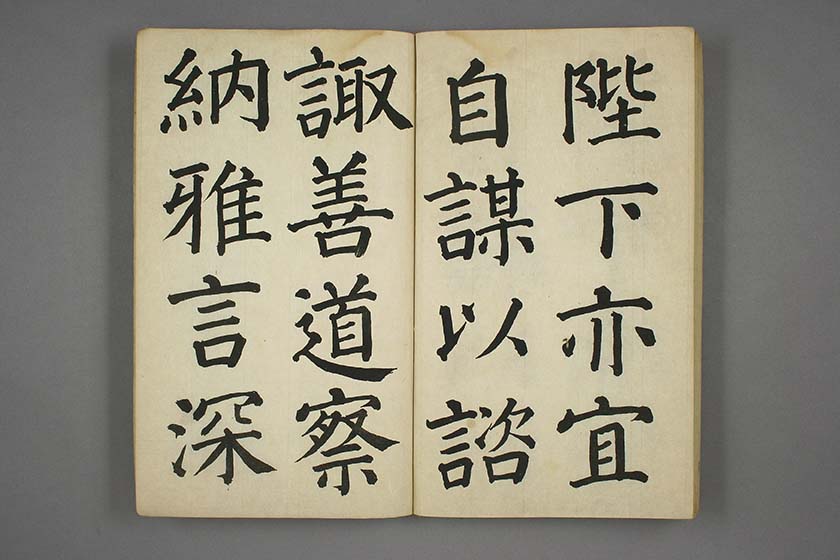 陛下亦宜
自謀以諮
諏善道察
納雅言深